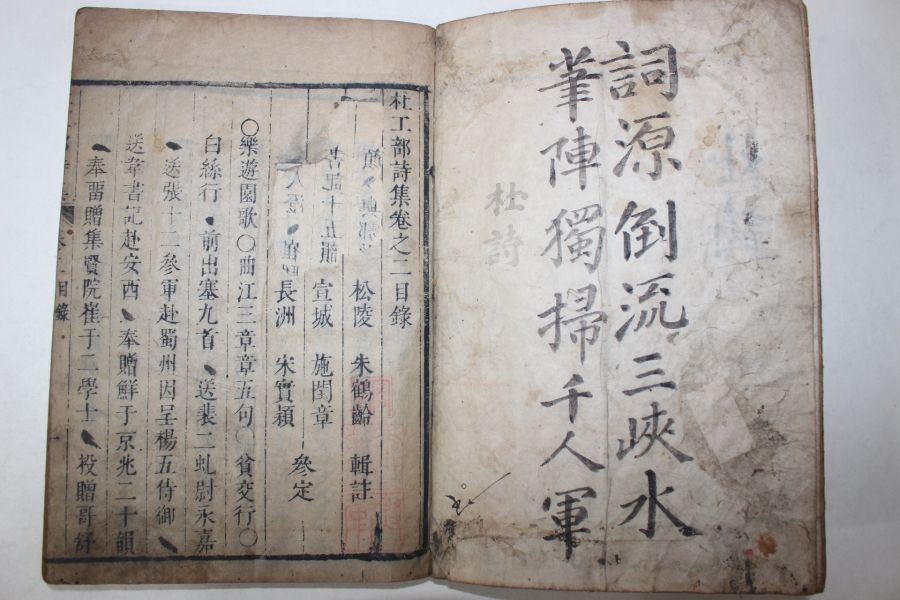 詞源倒流三峽水
筆陣獨掃千人軍
杜詩
杜工部詩集卷之二目錄
松陵 朱鶴齡 輯註
書記十五韻 宣城 施閏章
長洲 宋實穎 參定
○樂遊園歌○曲江三章章五句○貧交行○
白絲行 前出塞九首 送裴二虬尉永嘉
送張十二參軍赴蜀州因呈楊五侍御
送韋書記赴安西 奉贈鮮于京兆二十韻
奉留贈集賢院崔于二學士 投贈哥舒
目錄